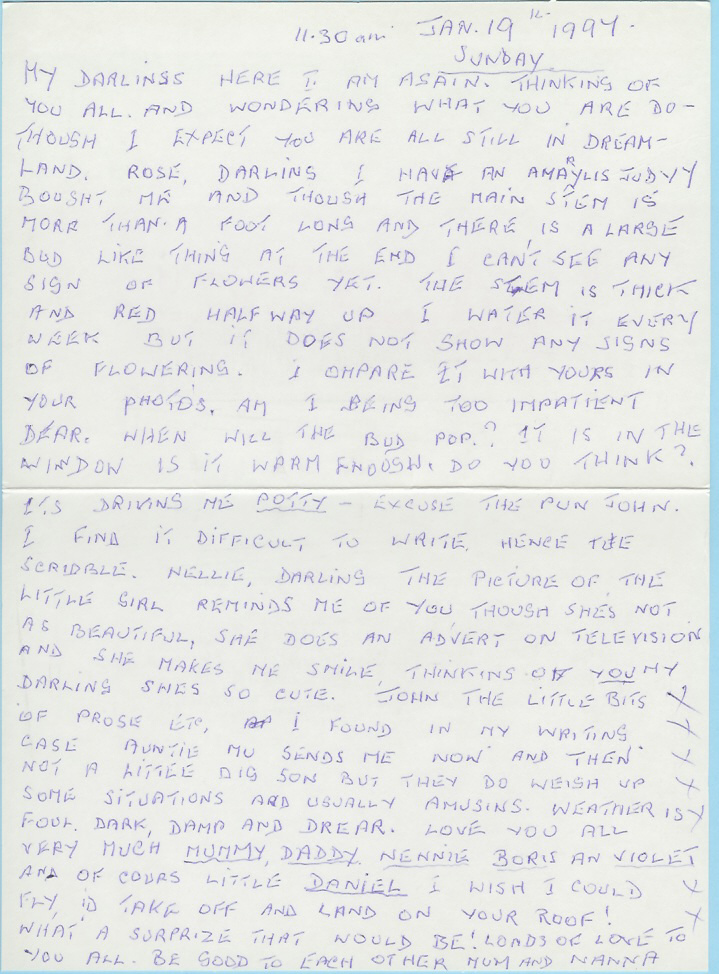 11.30 am JAN. 19th 1997.
SUNDAY
MY DARLINGS HERE I AM AGAIN. THINKING OF
YOU ALL. AND WONDERING WHAT YOU ARE DO-
THOUGH I EXPECT YOU ARE ALL STILL IN DREAM-
LAND. ROSE, DARLING I HAVE AN AMARYLIS JUDYY
BOUGHT ME AND THOUGH THE MAIN STEM IS
MORE THAN A FOOT LONG AND THERE IS A LARGE
BUD LIKE THING AT THE END I CAN'T SEE ANY
SIGN OF FLOWERS YET. THE STEM IS THICK
AND RED HALF WAY UP I WATER IT EVERY
WEEK BUT IT DOES NOT SHOW ANY SIGNS
OF FLOWERING. I OMPARE IT WITH YOURS IN
YOUR PHOTOS, AM I BEING TOO IMPATIENT
DEAR. WHEN WILL THE BUD POP.? IT IS IN THE
WINDOW IS IT WARM ENOUGH. DO YOU THINK?.
IT'S DRIVING ME POTTY – EXCUSE THE PUN JOHN.
I FIND IT DIFFICULT TO WRITE, HENCE THE
SCRIBBLE. NELLIE, DARLING THE PICTURE OF THE
LITTLE GIRL REMINDS ME OF YOU THOUGH SHE'S NOT
AS BEAUTIFUL, SHE DOES AN ADVERT ON TELEVISION
AND SHE MAKES ME SMILE, THINKING OF YOU MY
DARLING SHES SO CUTE. JOHN THE LITTLE BITS X
OF PROSE ETC, I FOUND IN MY WRITING X
CASE AUNTIE MU SENDS ME NOW AND THEN X
NOT A LITTLE DIG SON BUT THEY DO WEIGH UP X
SOME SITUATIONS AND USUALLY AMUSING. WEATHER IS X
FOUL. DARK, DAMP AND DREAR. LOVE YOU ALL
VERY MUCH MUMMY, DADDY NENNIE BORIS AN VIOLET
AND OF COURS LITTLE DANIEL I WISH I COULD X
FLY, I'D TAKE OFF AND LAND ON YOUR ROOF! X
WHAT A SURPRIZE THAT WOULD BE! LOADS OF LOVE TO
YOU ALL. BE GOOD TO EACH OTHER MUM AND NANNA